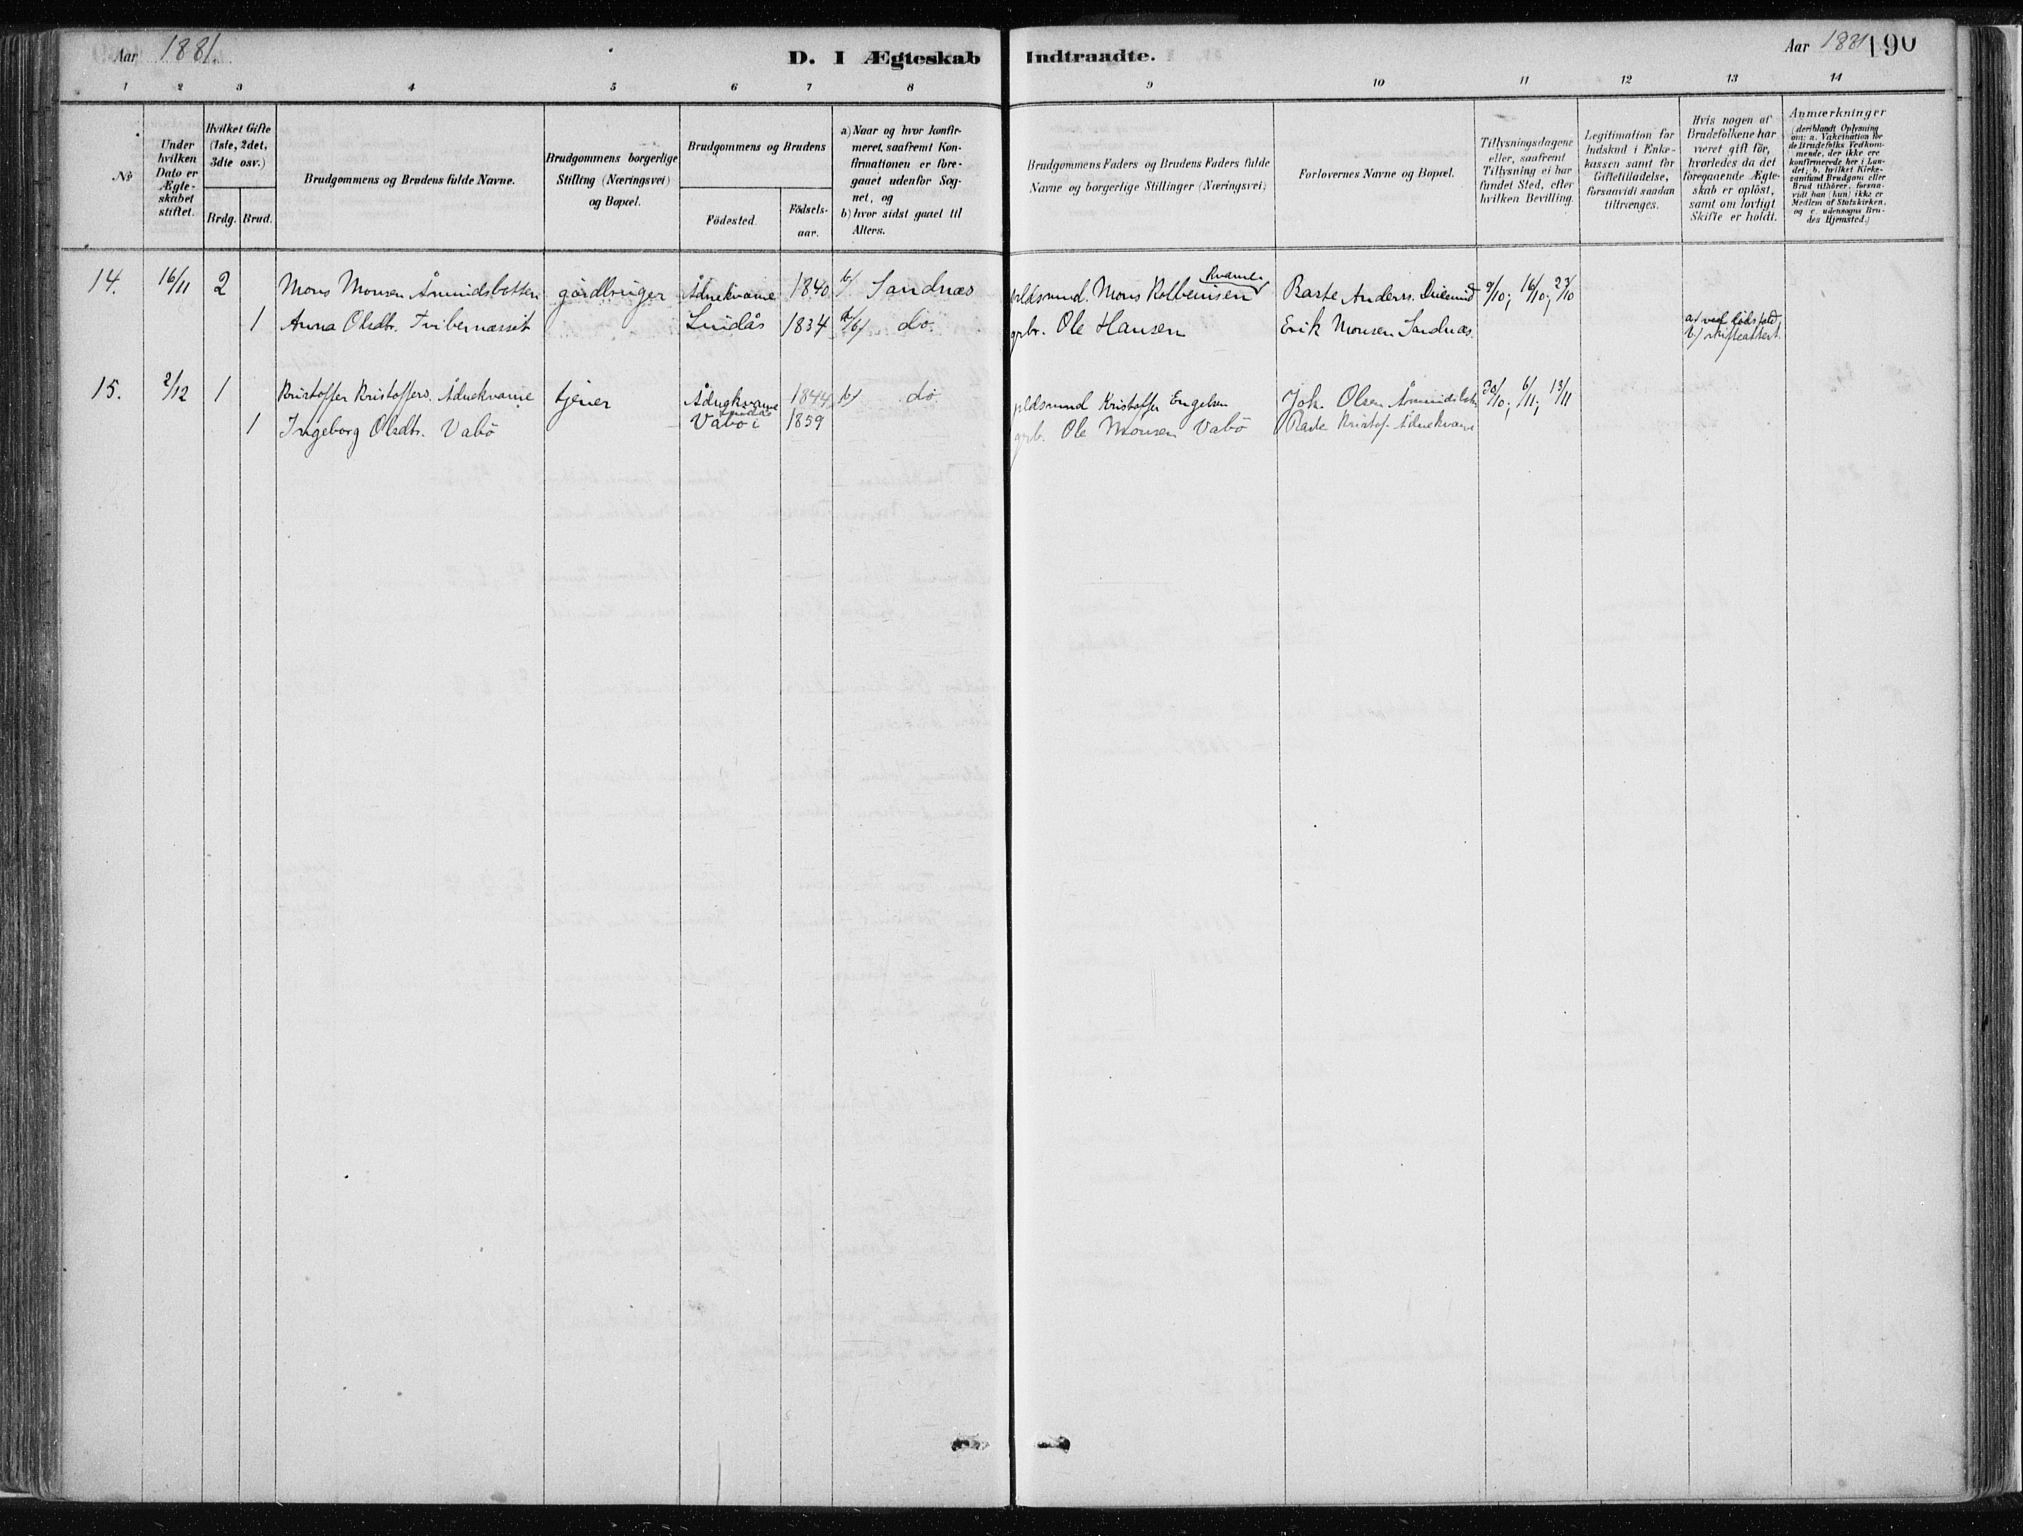 Aar 1881.
D. I Ægteskab Indtraadte.
Aar 1881
190
1 2 3 4 5 6 7 8 9 10 11 12 13 14
No
Under hvilken Dato er Ægteskabet stiftet.
Hvilket Gifte (1ste, 2det, 3die osv.)
Brdg. Brud.
Brudgommens og Brudens fulde Navne.
Brudgommens borgerlige Stilling (Næringsvei) og Bopæl.
Brudgommens og Brudens
Födested.
Födselsaar.
a) Naar og hvor konfirmeret, saafremt Konfirmationen er foregaaet udenfor Sognet, og
b) hvor sidst gaaet til Alters.
Brudgommens Faders og Brudens Faders fulde Navne og borgerlige Stillinger (Næringsvei)
Forlovernes Navne og Bopæl.
Tillysningsdagene eller, saafremt Tillysning ei har fundet Sted, efter hvilken Bevilling.
Legitimation for Indskud i Enkekassen samt for Giftetilladelse, forsaavidt saadan tiltrænges.
Hvis nogen af Brudefolkene har været gift för, hvorledes da det foregaaende Ægteskab er oplöst, samt om lovligt Skifte er holdt.
Anmærkninger
(deriblandt Oplysning om: a. Vakcination for de Brudefolks Vedkommende, der ikke ere konfirmerede her i Landet; b. hvilket Kirkesamfund Brudgom eller Brud tilhörer, forsaavidt han (hun) ikke er Medlem af Statskirken, og c. udensogns Brudes Hjemsted.)
14. 16/11 2 Mons Monsen Åmundsbotten gårdbruger Ådnekvame 1840 b/ Sandnæs foldsmd. Mons Kolbeinsen Kvame Baste Anders. 9/10, 16/10, 23/10
1 Anna Olsdtr. Lindås 1834 b/ do. grbr. Ole Hansen Erik Monsen Sandnæs. a/ ved dødsfald b/ skifteattest.
15. 2/12 1 Kristoffer Kristoffers. Ådnekvame tjener Ådnekvame 1844 b/ do foldsmd Kristoffer Engelsen Joh. Olsen 30/10, 6/11, 13/11
1 Ingeborg Olsdtr. Vabö Vabö i Lindås 1859 grbr. Ole Monsen Vabö Baste Kristof. Ådnekvame